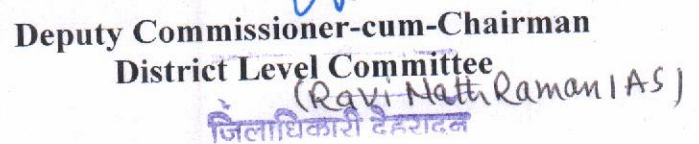 Deputy Commissioner-cum-Chairman
District Level Committee
(Ravi Nath Raman IAS)
जिलाधिकारी देहरादून